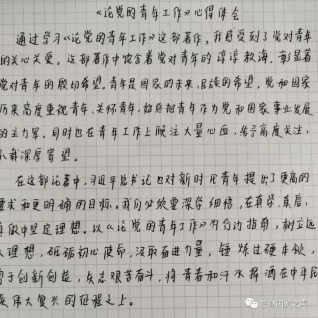 《论党的青年工作》心得体会
通过学习《论党的青年工作》这部著作,我感受到了党对青年
的关心关爱。这部著作中饱含着党对青年的谆谆教诲,彰显着
党对青年的殷切希望。青年是国家的未来,民族的希望,党和国家
历来高度重视青年、关怀青年,始终把青年作为党和国家事业发展
的主力军,同时也在青年工作上倾注大量心血,给予高度关注,
承载深厚寄望。
在这部论著中,习近平总书记也对新时代青年提出了更高的
要求和更明确的目标。我们必须要深学细悟,在真学、真信、
真做中坚定理想。以《论党的青年工作》为行动指南,树立远
大理想,砥砺初心使命,汲取奋进力量,锤炼过硬本领,
勇于创新创造,矢志艰苦奋斗,将青春和汗水挥洒在中华民
族伟大复兴的征程之上。